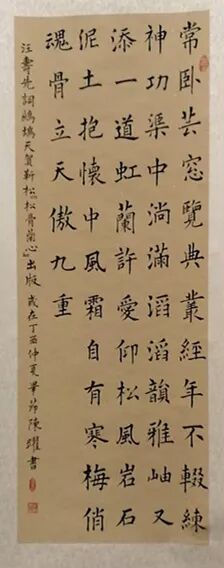 常卧芸窓覽典叢經年不輟練
神功渠中淌滿滔滔韻雅岫又
添一道虹蘭許愛仰松風岩石
泥土抱懷中風霜自有寒梅俏
魂骨立天傲九重
汪壽先詞鷓鴣天賀靳松《松骨蘭心》出版 歲在丁酉仲夏畢節陳躍書